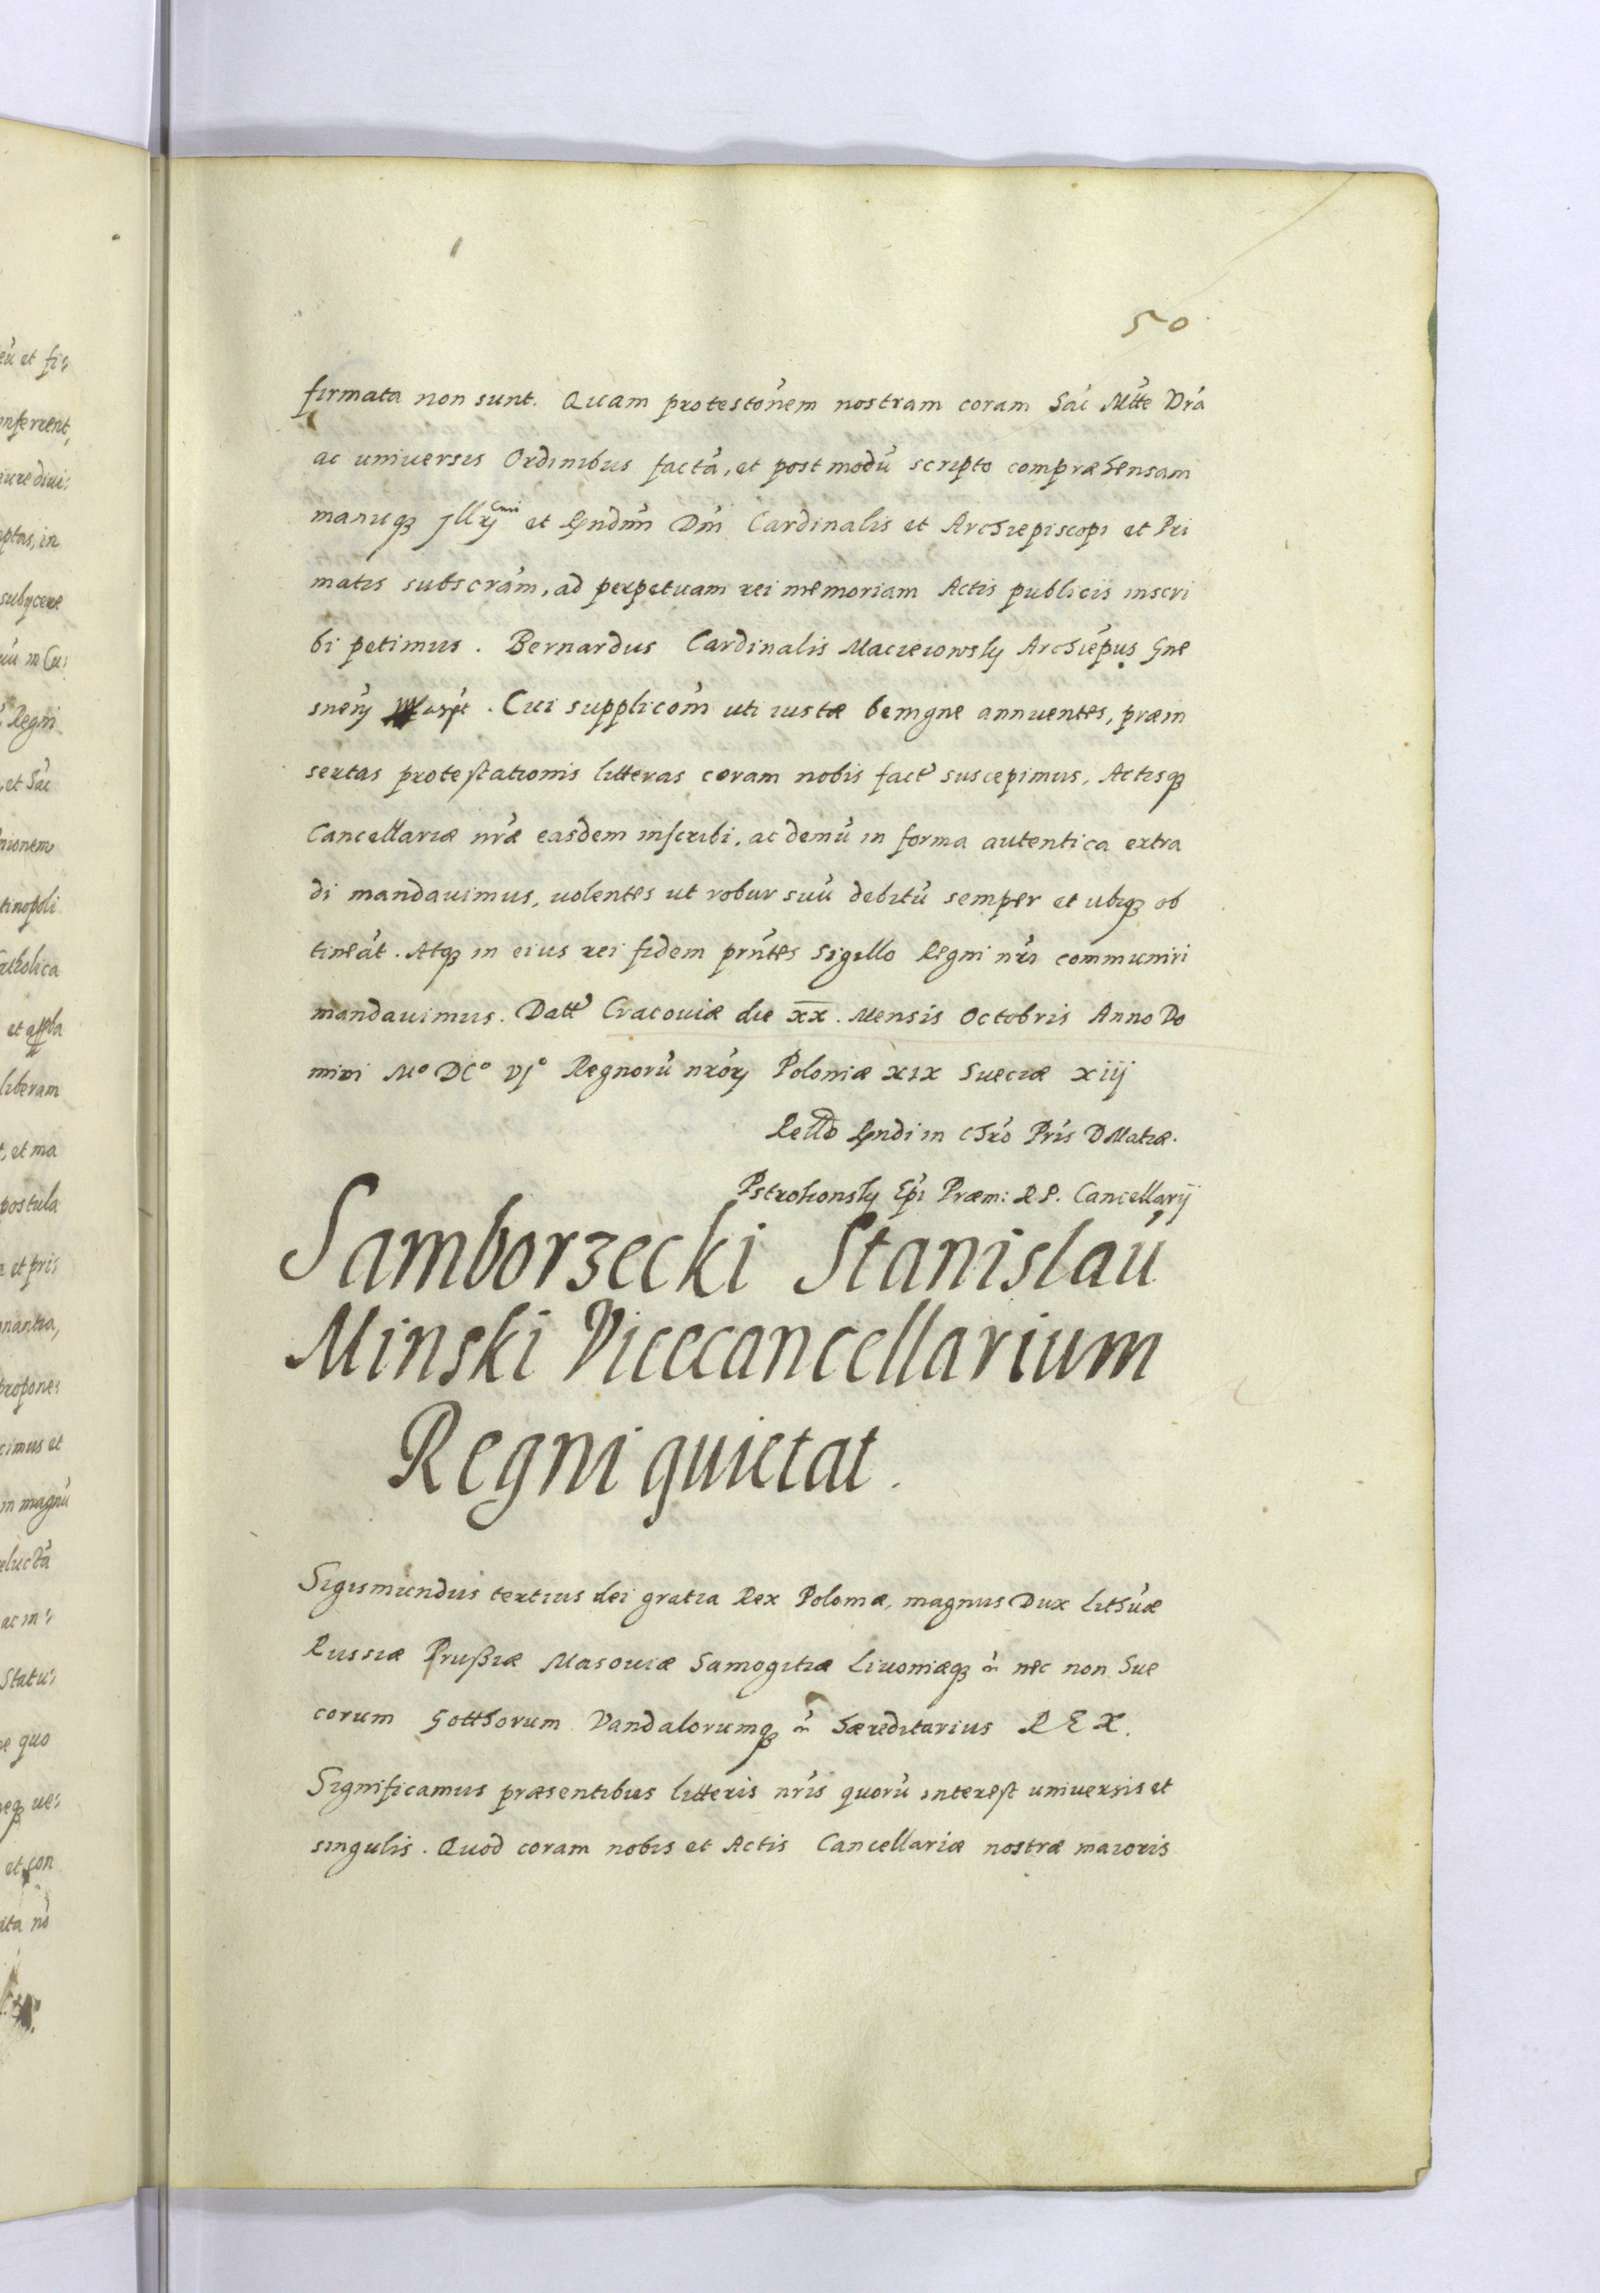 50
firmata non sunt. Quam protestōnem nostram coram Sac̄ Mtte Vrā
ac universis Ordinibus factā, et post modū scripto compræhensam
manuqȝ Illꝛj et Rndm̄ Dn̄i Cardinalis et Archiepiscopi et Pri
matis subscrām, ad perpetuam rei memoriam Actis publicis inscri
bi petimus. Bernardus Cardinalis Macieiowsky Archiēpus Gne
snen̄. Cui supplicōni uti iustæ benigne annuentes, præin
sertas protestationis litteras coram nobis fact̄ suscepimus, Actisqȝ
Cancellariæ nr̄æ easdem inscribi, ac demū in forma autentica extra
di mandavimus, volentes ut robur suū debitū semper et ubiqȝ ob
tineāt. Atqȝ in eius rei fidem prn̄tes Sigillo Regni nr̄i communiri
mandavimus. Datt̄ Cracoviæ die xx. Mensis Octobris Anno Do
mini Mº DCº VIº Regnorū nr̄oꝝ Poloniæ xix Sueciæ xiij
Rello Rndi in Chr̄o Pr̄is D Matiæ.
Pstrokonsky Ep̄i Præm: R P. Cancellarij
Samborzecki Stanislaū
Minski Vicecancellarium
Regni quietat.
Sigismundus tertius dei gratia Rex Poloniæ, magnus Dux Lithūæ
Russiæ Prußiæ Masoviæ Samogitiæ Livoniæqȝ nec non Sue
corum Gotthorum Vandalorumqȝ hæreditarius REX.
Significamus præsentibus litteris nr̄is quorū interest universis et
singulis. Quod coram nobis et Actis Cancellariæ nostræ maioris